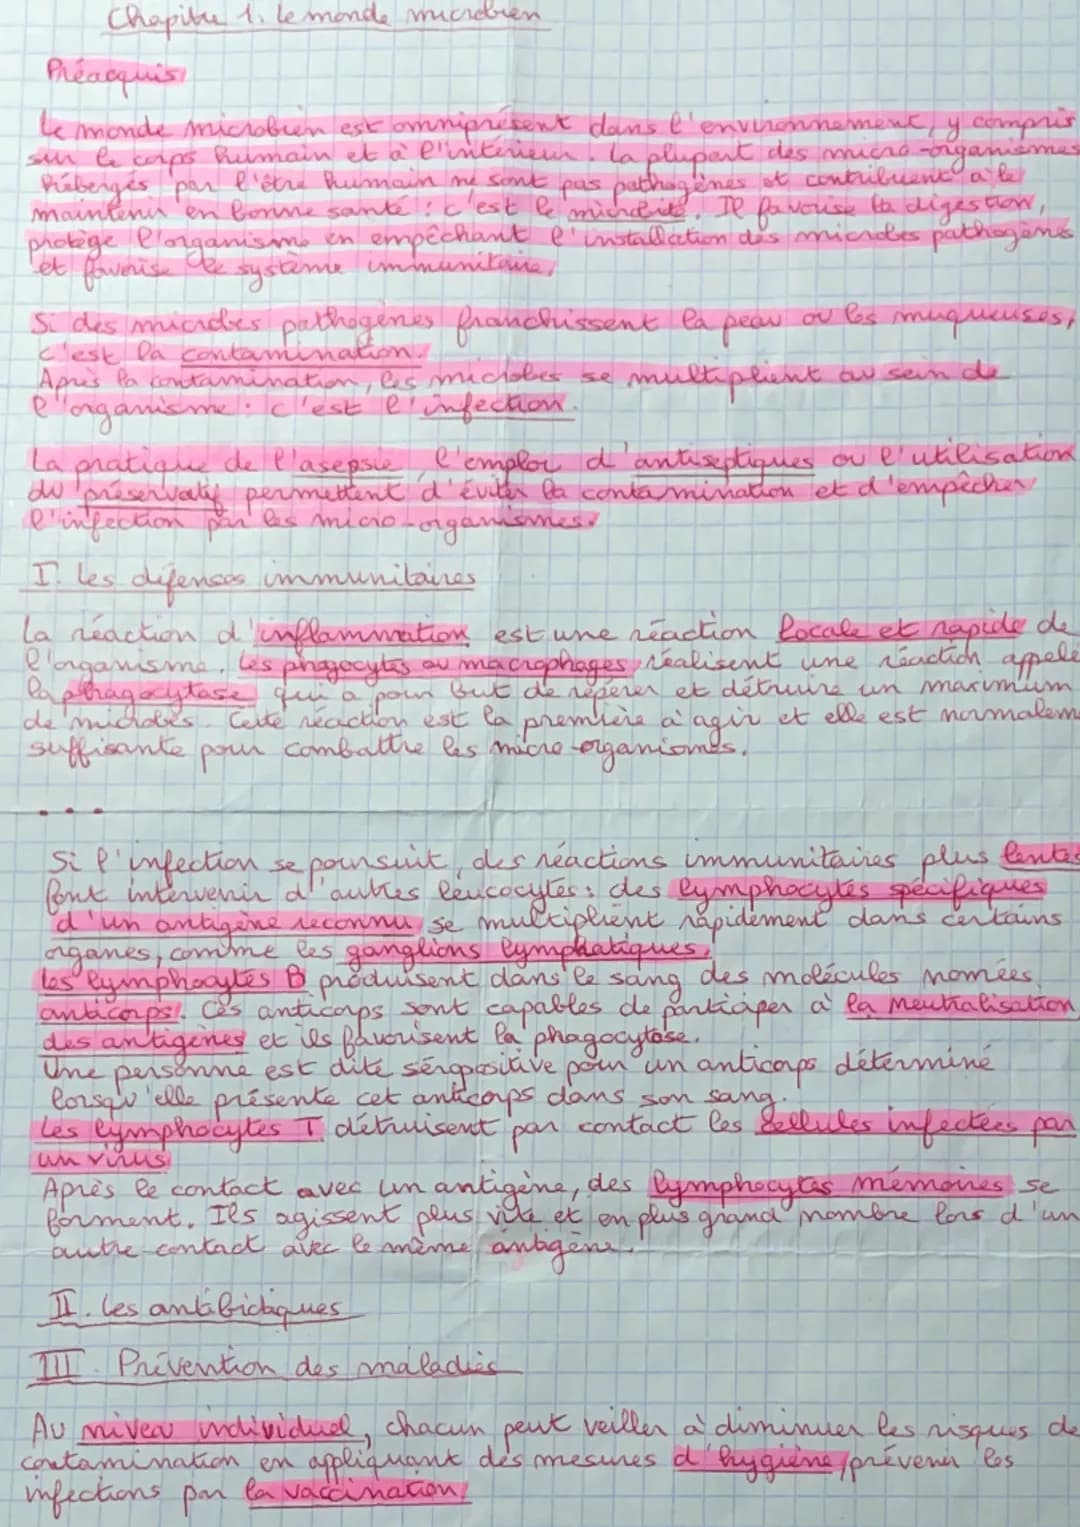 Chapitre 1. Le monde microbien
Préacquis
Le monde microbien est omniprésent dans l'environnement, y compris
sur le corps humain et à l'intérieur. La plupart des micro-organismes
hébergés par l'être humain ne sont pas pathogènes et contribuent à le
maintenir en bonne santé : c'est le microbite. Il favorise la digestion,
protège l'organisme en empêchant l'installation des microbes pathogènes
et favorise le système immunitaire.
Si des microbes pathogènes franchissent la peau ou les muqueuses,
c'est la contamination.
Après la contamination, les microbes se multiplient au sein de
l'organisme : c'est l'infection.
La pratique de l'asepsie, l'emploi d'antiseptiques ou l'utilisation
du préservatif permettent d'éviter la contamination et d'empêcher
l'infection par les micro-organismes.
I. Les défenses immunitaires
La réaction d'inflammation est une réaction locale et rapide de
l'organisme. Les phagocytes ou macrophages réalisent une réaction appelé
la phagocytose qui a pour but de repérer et détruire un maximum
de microbes. Cette réaction est la première à agir et elle est normalem
suffisante pour combattre les micro-organismes.
...
Si l'infection se poursuit, des réactions immunitaires plus lentes
font intervenir d'autres leucocytes : des lymphocytes spécifiques
d'un antigène reconnu se multiplient rapidement dans certains
organes, comme les ganglions lymphatiques.
Les lymphocytes B produisent dans le sang des molécules nomées
anticorps. Ces anticorps sont capables de participer à la neutralisation
des antigènes et ils favorisent la phagocytose.
Une personne est dite séropositive pour un anticorps déterminé
lorsqu'elle présente cet anticorps dans son sang.
Les lymphocytes T détruisent par contact les cellules infectées par
un virus
Après le contact avec un antigène, des lymphocytes mémoires se
forment. Ils agissent plus vite et en plus grand nombre lors d'un
autre contact avec le même antigène.
II. Les antibiotiques
III. Prévention des maladies
Au niveau individuel, chacun peut veiller à diminuer les risques de
contamination en appliquant des mesures d'hygiène, prévenir les
infections par la vaccination,